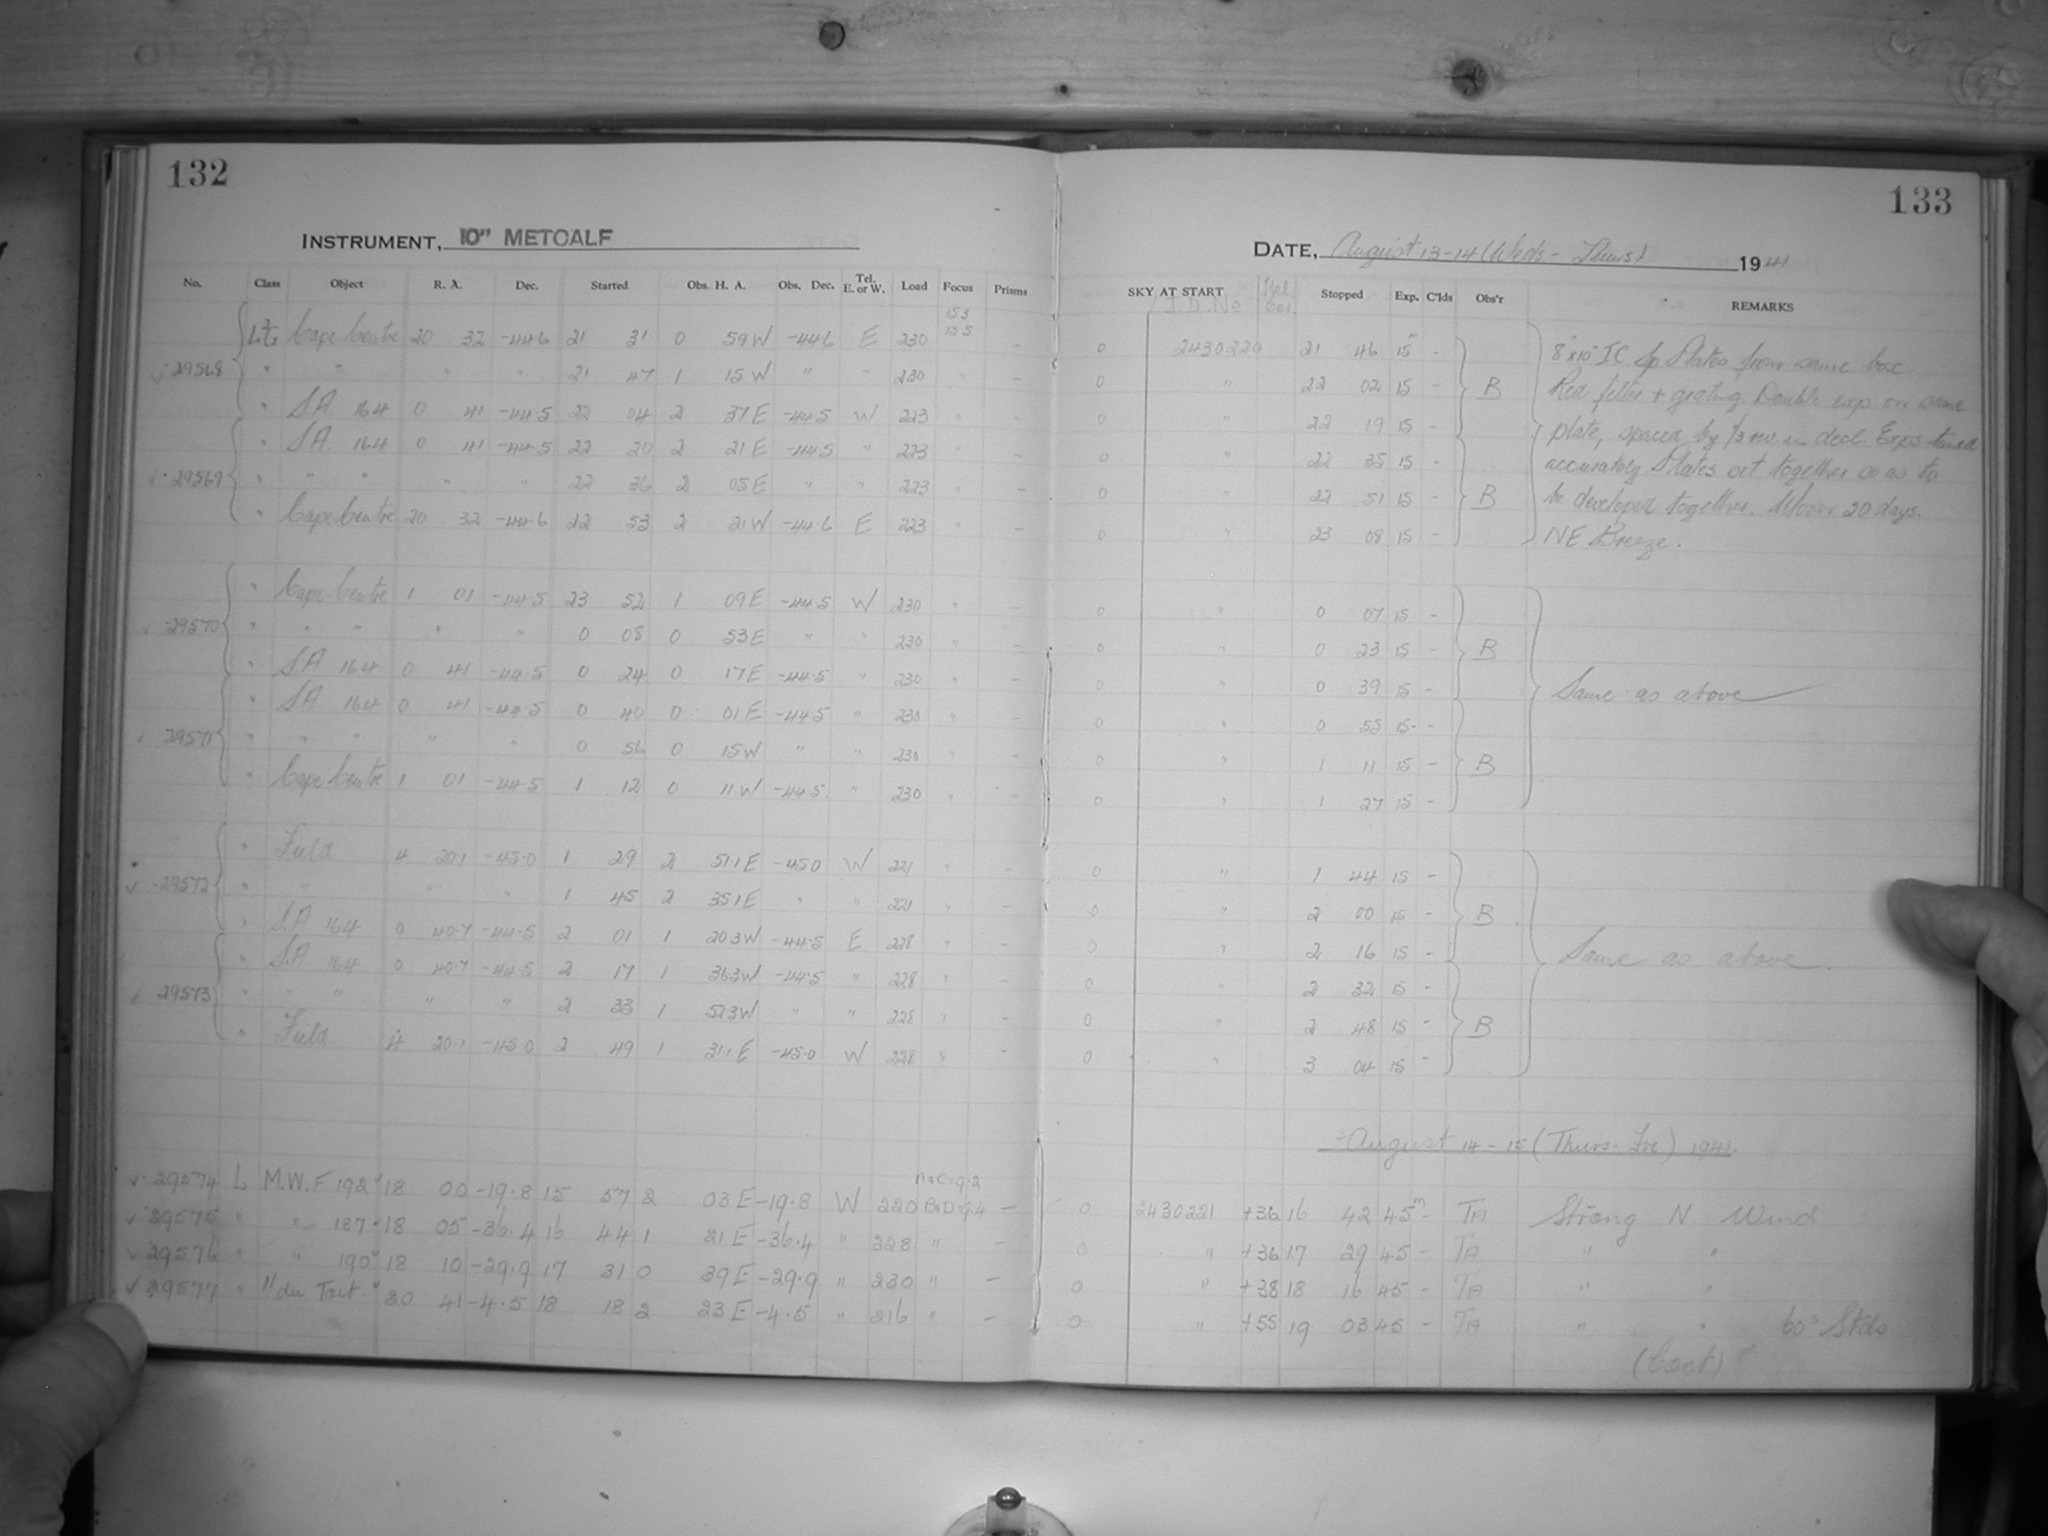 132
INSTRUMENT, 10" METCALF
No. Class Object R. A. Dec. Started Obs. H. A. Obs. Dec. Tel. E. or W. Load Focus Prisms
Cape Centre 20 32 -44.6 21 31 0 59 W -44.6 E 230 15.3 15.5 -
29568 " " " " 21 47 1 15 W " " 230 " -
" S.A. 164 0 41 -44.5 22 04 2 37 E -44.5 W 223 " -
" S.A. 164 0 41 -44.5 22 20 2 21 E -44.5 " 223 "
29569 " " " " " 22 36 2 05 E " " 223 " -
" Cape Centre 20 32 -44.6 22 53 2 21 W -44.6 E 223 " -
" Cape Centre 1 01 -44.5 23 52 1 09 E -44.5 W 230 " -
29570 " " " " " 0 08 0 53 E " " 230 " -
" S.A. 164 0 41 -44.5 0 24 0 17 E -44.5 " 230 " -
" S.A. 164 0 41 -44.5 0 40 0 01 E -44.5 " 230 " -
29571 " " " " " 0 56 0 15 W " " 230 " -
" Cape Centre 1 01 -44.5 1 12 0 11 W -44.5 " 230 " -
" Field 4 20.1 -45.0 1 29 2 51.1 E -45.0 W 221 " -
29572 " " " " 1 45 2 35.1 E " " 221 " -
" S.A. 164 0 40.7 -44.5 2 01 1 20.3 W -44.5 E 228 " -
" S.A. 164 0 40.7 -44.5 2 17 1 36.3 W -44.5 " 228 " -
29573 " " " " " 2 33 1 52.3 W " " 228 " -
" Field 4 20.1 -45.0 2 49 1 31.1 E -45.0 W 228 " -
29574 L M.W.F 192 18 00 -19.8 15 57 2 03 E -19.8 W 220 A+C 9.2 B+D 9.4 -
29575 " " 187 18 05 -36.4 16 44 1 21 E -36.4 " 228 " -
29576 " " 190 18 10 -29.9 17 31 0 39 E -29.9 " 230 " -
29577 " " du Toit 20 41 -4.5 18 18 2 23 E -4.5 " 216 " -
133
DATE, August 13-14 (Weds - Thurs) 1941
SKY AT START J.D. No Stopped Exp. C'lds Obs'r REMARKS
0 2430220 21 46 15m - 8"x10" IC Sp Plates from same box.
0 " 22 02 15 - B Red filter + grating. Double exp on same
0 " 22 19 15 - plate, spaced by 1/3 mm in decl. Exps timed
0 " 22 35 15 - accurately. Plates cut together so as to
0 " 22 51 15 - B be developed together. Moon 20 days.
0 " 23 08 15 - NE Breeze.
0 " 0 07 15 -
0 " 0 23 15 - B
0 " 0 39 15 - Same as above
0 " 0 55 15 -
0 " 1 11 15 - B
0 " 1 27 15 -
0 " 1 44 15 -
0 " 2 00 15 - B
0 " 2 16 15 - Same as above
" 2 32 15 -
0 " 2 48 15 - B
0 " 3 04 15 -
August 14-15 (Thurs. Fri) 1941.
0 2430221 +36 16 42 45m - TA Strong N Wind
0 " +36 17 29 45 - TA " "
0 " +38 18 16 45 - TA " "
0 " +55 19 03 45 - TA " " 60s Stds
(Cont)